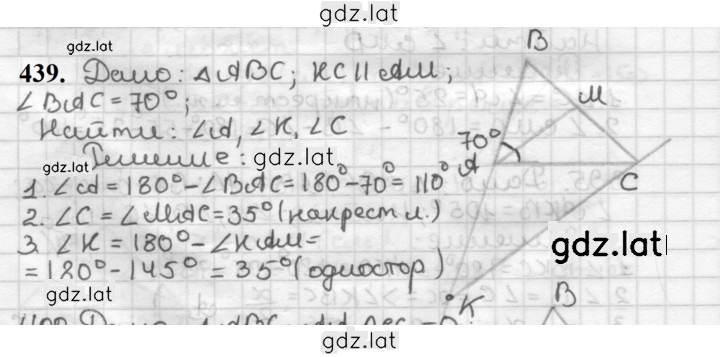 gdz.lat
gdz.lat
439. Дано: △ABC; KC ∥ AM;
∠BAC = 70°;
Найти: ∠A, ∠K, ∠C
gdz.lat Решение: gdz.lat
1. ∠A = 180° - ∠BAC = 180° - 70° = 110°
2. ∠C = ∠MAC = 35° (накрест л.)
3. ∠K = 180° - ∠KAM =
= 180° - 145° = 35° (одностор)
B
M
70°
A
C
K
gdz.lat
gdz.lat
B
gdz.lat